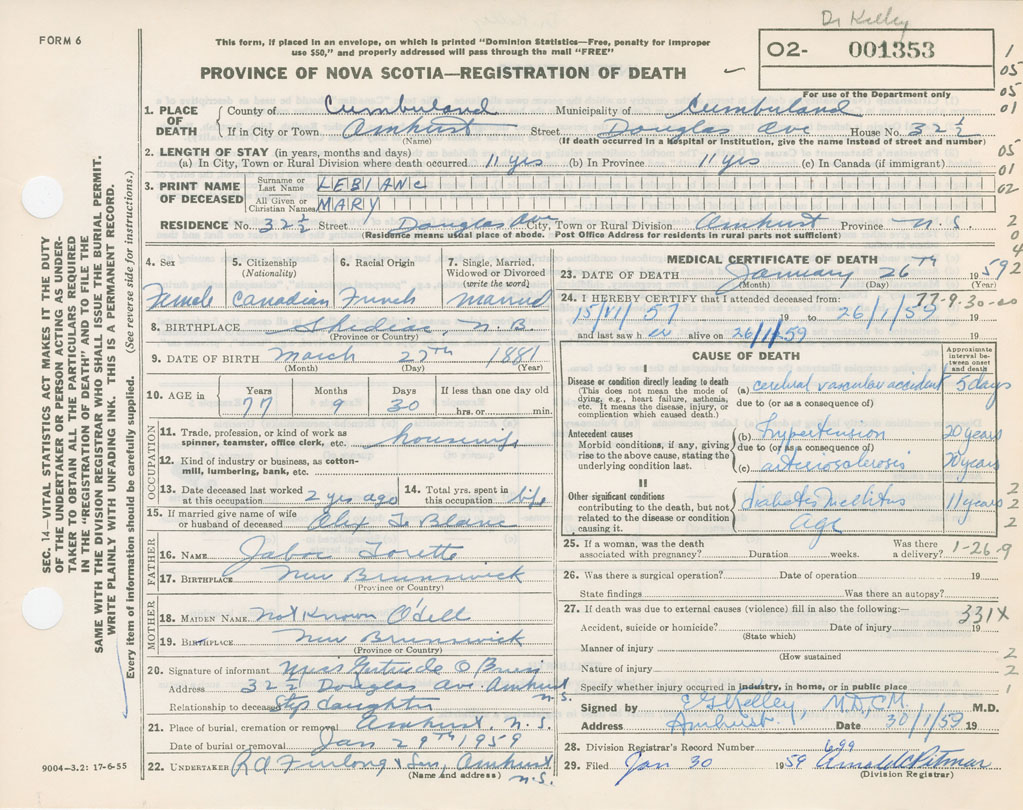 Dr Kelley
FORM 6
This form, if placed in an envelope, on which is printed "Dominion Statistics—Free, penalty for improper
use $50," and properly addressed will pass through the mail "FREE"
O2- 001353
For use of the Department only
PROVINCE OF NOVA SCOTIA—REGISTRATION OF DEATH
1. PLACE OF DEATH County of Cumberland Municipality of Cumberland
If in City or Town Amherst Street Douglas Ave House No. 32 ½
(Name) (If death occurred in a hospital or institution, give the name instead of street and number)
2. LENGTH OF STAY (in years, months and days)
(a) In City, Town or Rural Division where death occurred 11 yrs (b) In Province 11 yrs (c) In Canada (if immigrant)
3. PRINT NAME OF DECEASED Surname or Last Name LEBLANC
All Given or Christian Names MARY
RESIDENCE No. 32 ½ Street Douglas Ave City, Town or Rural Division Amherst Province N.S.
(Residence means usual place of abode. Post Office Address for residents in rural parts not sufficient)
4. Sex 5. Citizenship (Nationality) 6. Racial Origin 7. Single, Married, Widowed or Divorced (write the word)
Female Canadian French Married
8. BIRTHPLACE Shediac, N.B.
(Province or Country)
9. DATE OF BIRTH March 27th 1881
(Month) (Day) (Year)
10. AGE in Years Months Days If less than one day old
77 9 30 hrs. or min.
OCCUPATION
11. Trade, profession, or kind of work as spinner, teamster, office clerk, etc. housewife
12. Kind of industry or business, as cotton-mill, lumbering, bank, etc.
13. Date deceased last worked at this occupation 2 yrs ago 14. Total yrs. spent in this occupation life
15. If married give name of wife or husband of deceased Alex Le Blanc
FATHER
16. NAME Jaboc Torette
17. BIRTHPLACE New Brunswick
(Province or Country)
MOTHER
18. MAIDEN NAME Not Known O'dell
19. BIRTHPLACE New Brunswick
(Province or Country)
20. Signature of informant Miss Gertrude O Brien
Address 32 ½ Douglas Ave Amherst N.S.
Relationship to deceased Step daughter
21. Place of burial, cremation or removal Amherst N.S.
Date of burial or removal Jan 29th 1959
22. UNDERTAKER R A Furlong & Son, Amherst N.S.
(Name and address)
MEDICAL CERTIFICATE OF DEATH
23. DATE OF DEATH January 26th 1959
(Month) (Day) (Year)
24. I HEREBY CERTIFY that I attended deceased from: 77-9-30-00
15/VI/57 19 to 26/1/59 19
and last saw her alive on 26/1/59 19
CAUSE OF DEATH
Approximate interval between onset and death
I
Disease or condition directly leading to death (a) cerebral vascular accident 5 days
(This does not mean the mode of dying, e.g., heart failure, asthenia, etc. It means the disease, injury, or complication which caused death.)
due to (or as a consequence of)
Antecedent causes (b) hypertension 20 years
Morbid conditions, if any, giving rise to the above cause, stating the underlying condition last.
due to (or as a consequence of)
(c) arteriosclerosis 20 years
II
Other significant conditions contributing to the death, but not related to the disease or condition causing it.
diabetes mellitus 11 years
age
25. If a woman, was the death associated with pregnancy? Duration weeks. Was there a delivery? 1-26-9
26. Was there a surgical operation? Date of operation 19
State findings Was there an autopsy?
27. If death was due to external causes (violence) fill in also the following:— 331X
Accident, suicide or homicide? Date of injury 19
(State which)
Manner of injury
(How sustained)
Nature of injury
Specify whether injury occurred in industry, in home, or in public place
Signed by Kelley, M.D.C.M. M.D.
Address Amherst. Date 30/1/59 19
28. Division Registrar's Record Number 699
29. Filed Jan 30 1959 Pitman
(Division Registrar)
SEC. 14—VITAL STATISTICS ACT MAKES IT THE DUTY
OF THE UNDERTAKER OR PERSON ACTING AS UNDER-
TAKER TO OBTAIN ALL THE PARTICULARS REQUIRED
IN THE "REGISTRATION OF DEATH" AND TO FILE THE
SAME WITH THE DIVISION REGISTRAR WHO SHALL ISSUE THE BURIAL PERMIT.
WRITE PLAINLY WITH UNFADING INK. THIS IS A PERMANENT RECORD.
Every item of information should be carefully supplied. (See reverse side for instructions.)
9004—3.2: 17-6-55
1
05
05
01
05
01
02
2
0
4
2
2
2
2
2
2
1